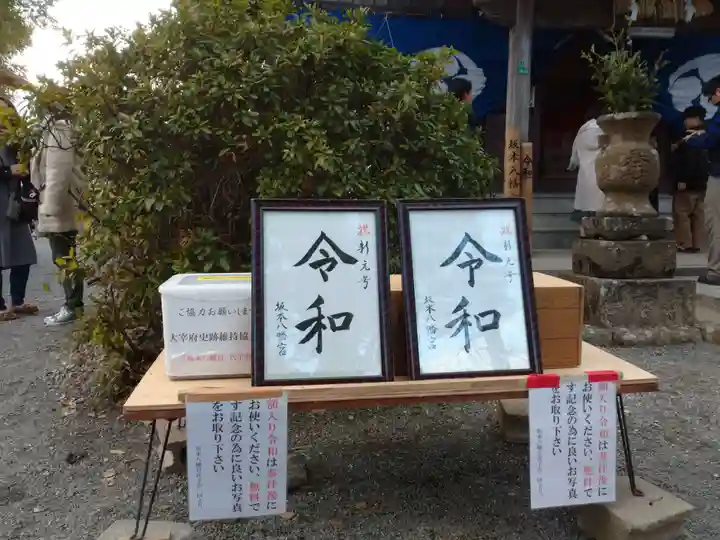 坂本八幡
令和
祝 新元号
令和
坂本八幡宮
祝 新元号
令和
坂本八幡宮
ご協力お願いします
大宰府史跡維持協
額入り令和は参拝後に
お使いください、無料で
す記念の為に良いお写真
をお取り下さい
額入り令和は参拝後に
お使いください、無料で
す記念の為に良いお写真
をお取り下さい